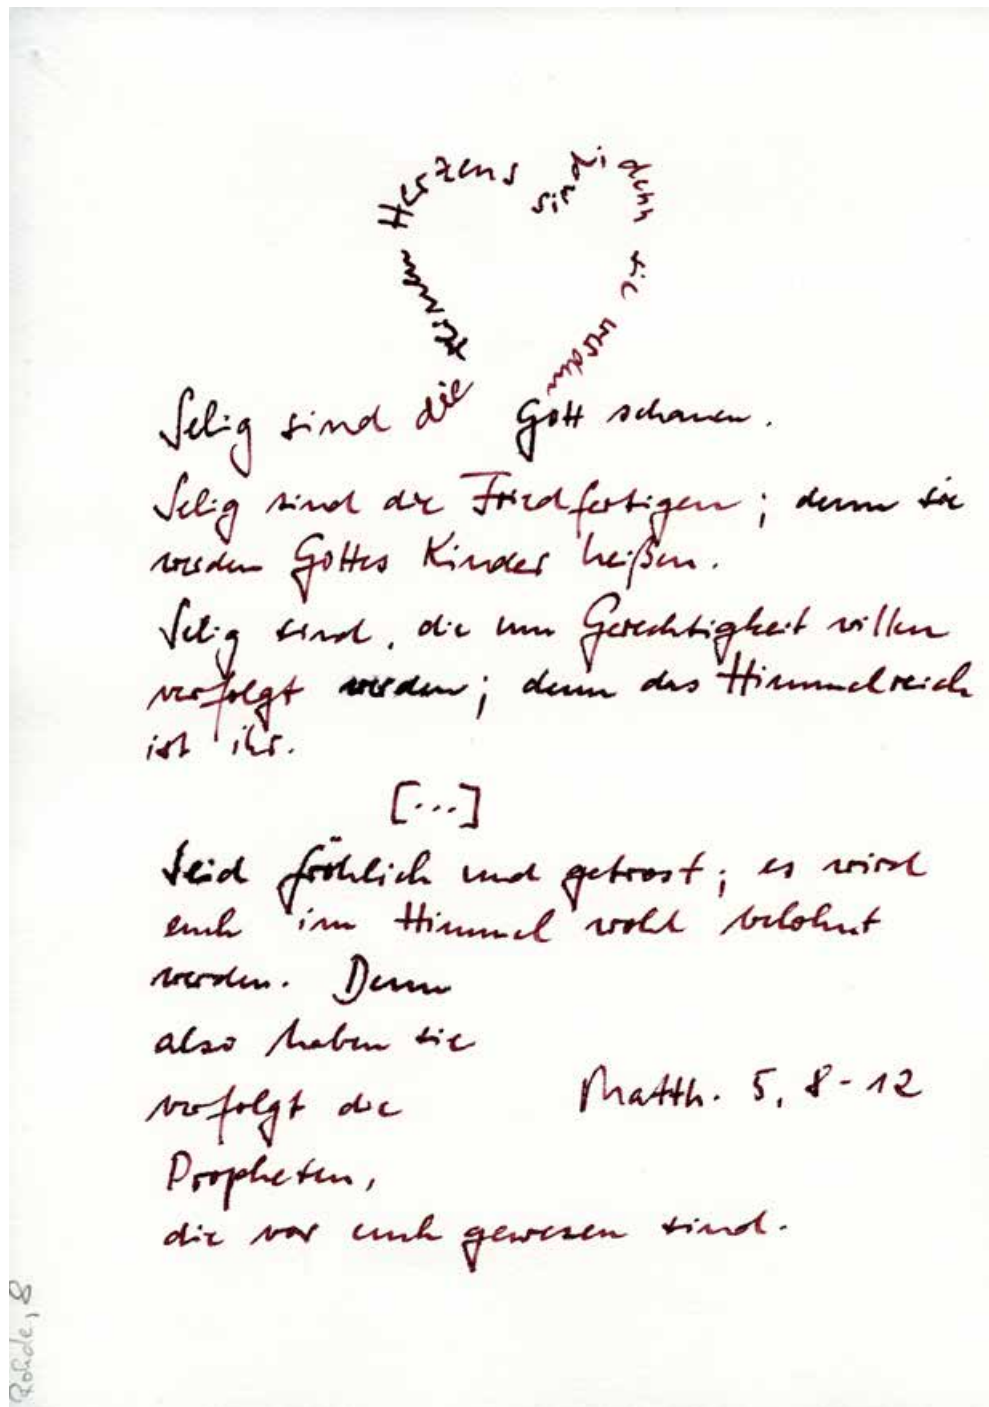 Selig sind die
reinen Herzens sind; denn sie werden
Gott schauen.
Selig sind die Friedfertigen; denn sie
werden Gottes Kinder heißen.
Selig sind, die um Gerechtigkeit willen
verfolgt werden; denn das Himmelreich
ist ihr.
[...]
Seid fröhlich und getrost; es wird
euch im Himmel wohl belohnt
werden. Denn
also haben sie
verfolgt die
Propheten,
die vor euch gewesen sind.
Matth. 5, 8-12
Rohde, 8